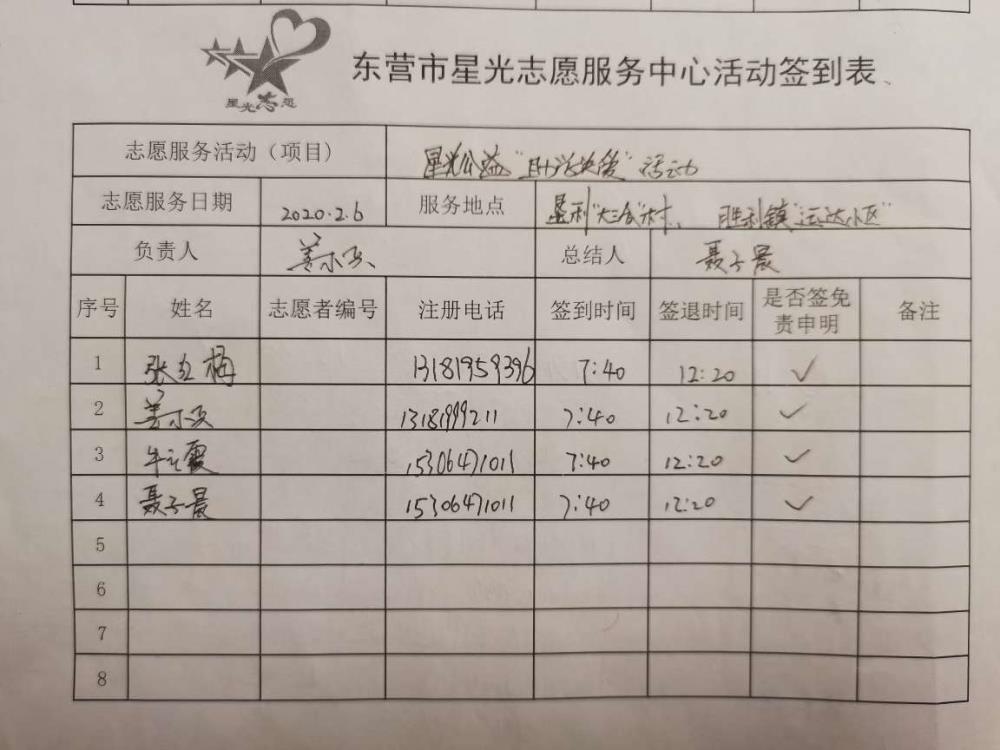 东营市星光志愿服务中心活动签到表
星光志愿
志愿服务活动（项目） 星光公益"助学决策"活动
志愿服务日期 2020.2.6 服务地点 垦利 村、胜利镇"运达小区"
负责人 姜小 总结人 聂子晨
序号 姓名 志愿者编号 注册电话 签到时间 签退时间 是否签免责申明 备注
1 张红梅 13181959396 7:40 12:20 ✓
2 姜小 13181999211 7:40 12:20 ✓
3 牛 霞 15306471011 7:40 12:20 ✓
4 聂子晨 15306471011 7:40 12:20 ✓
5
6
7
8